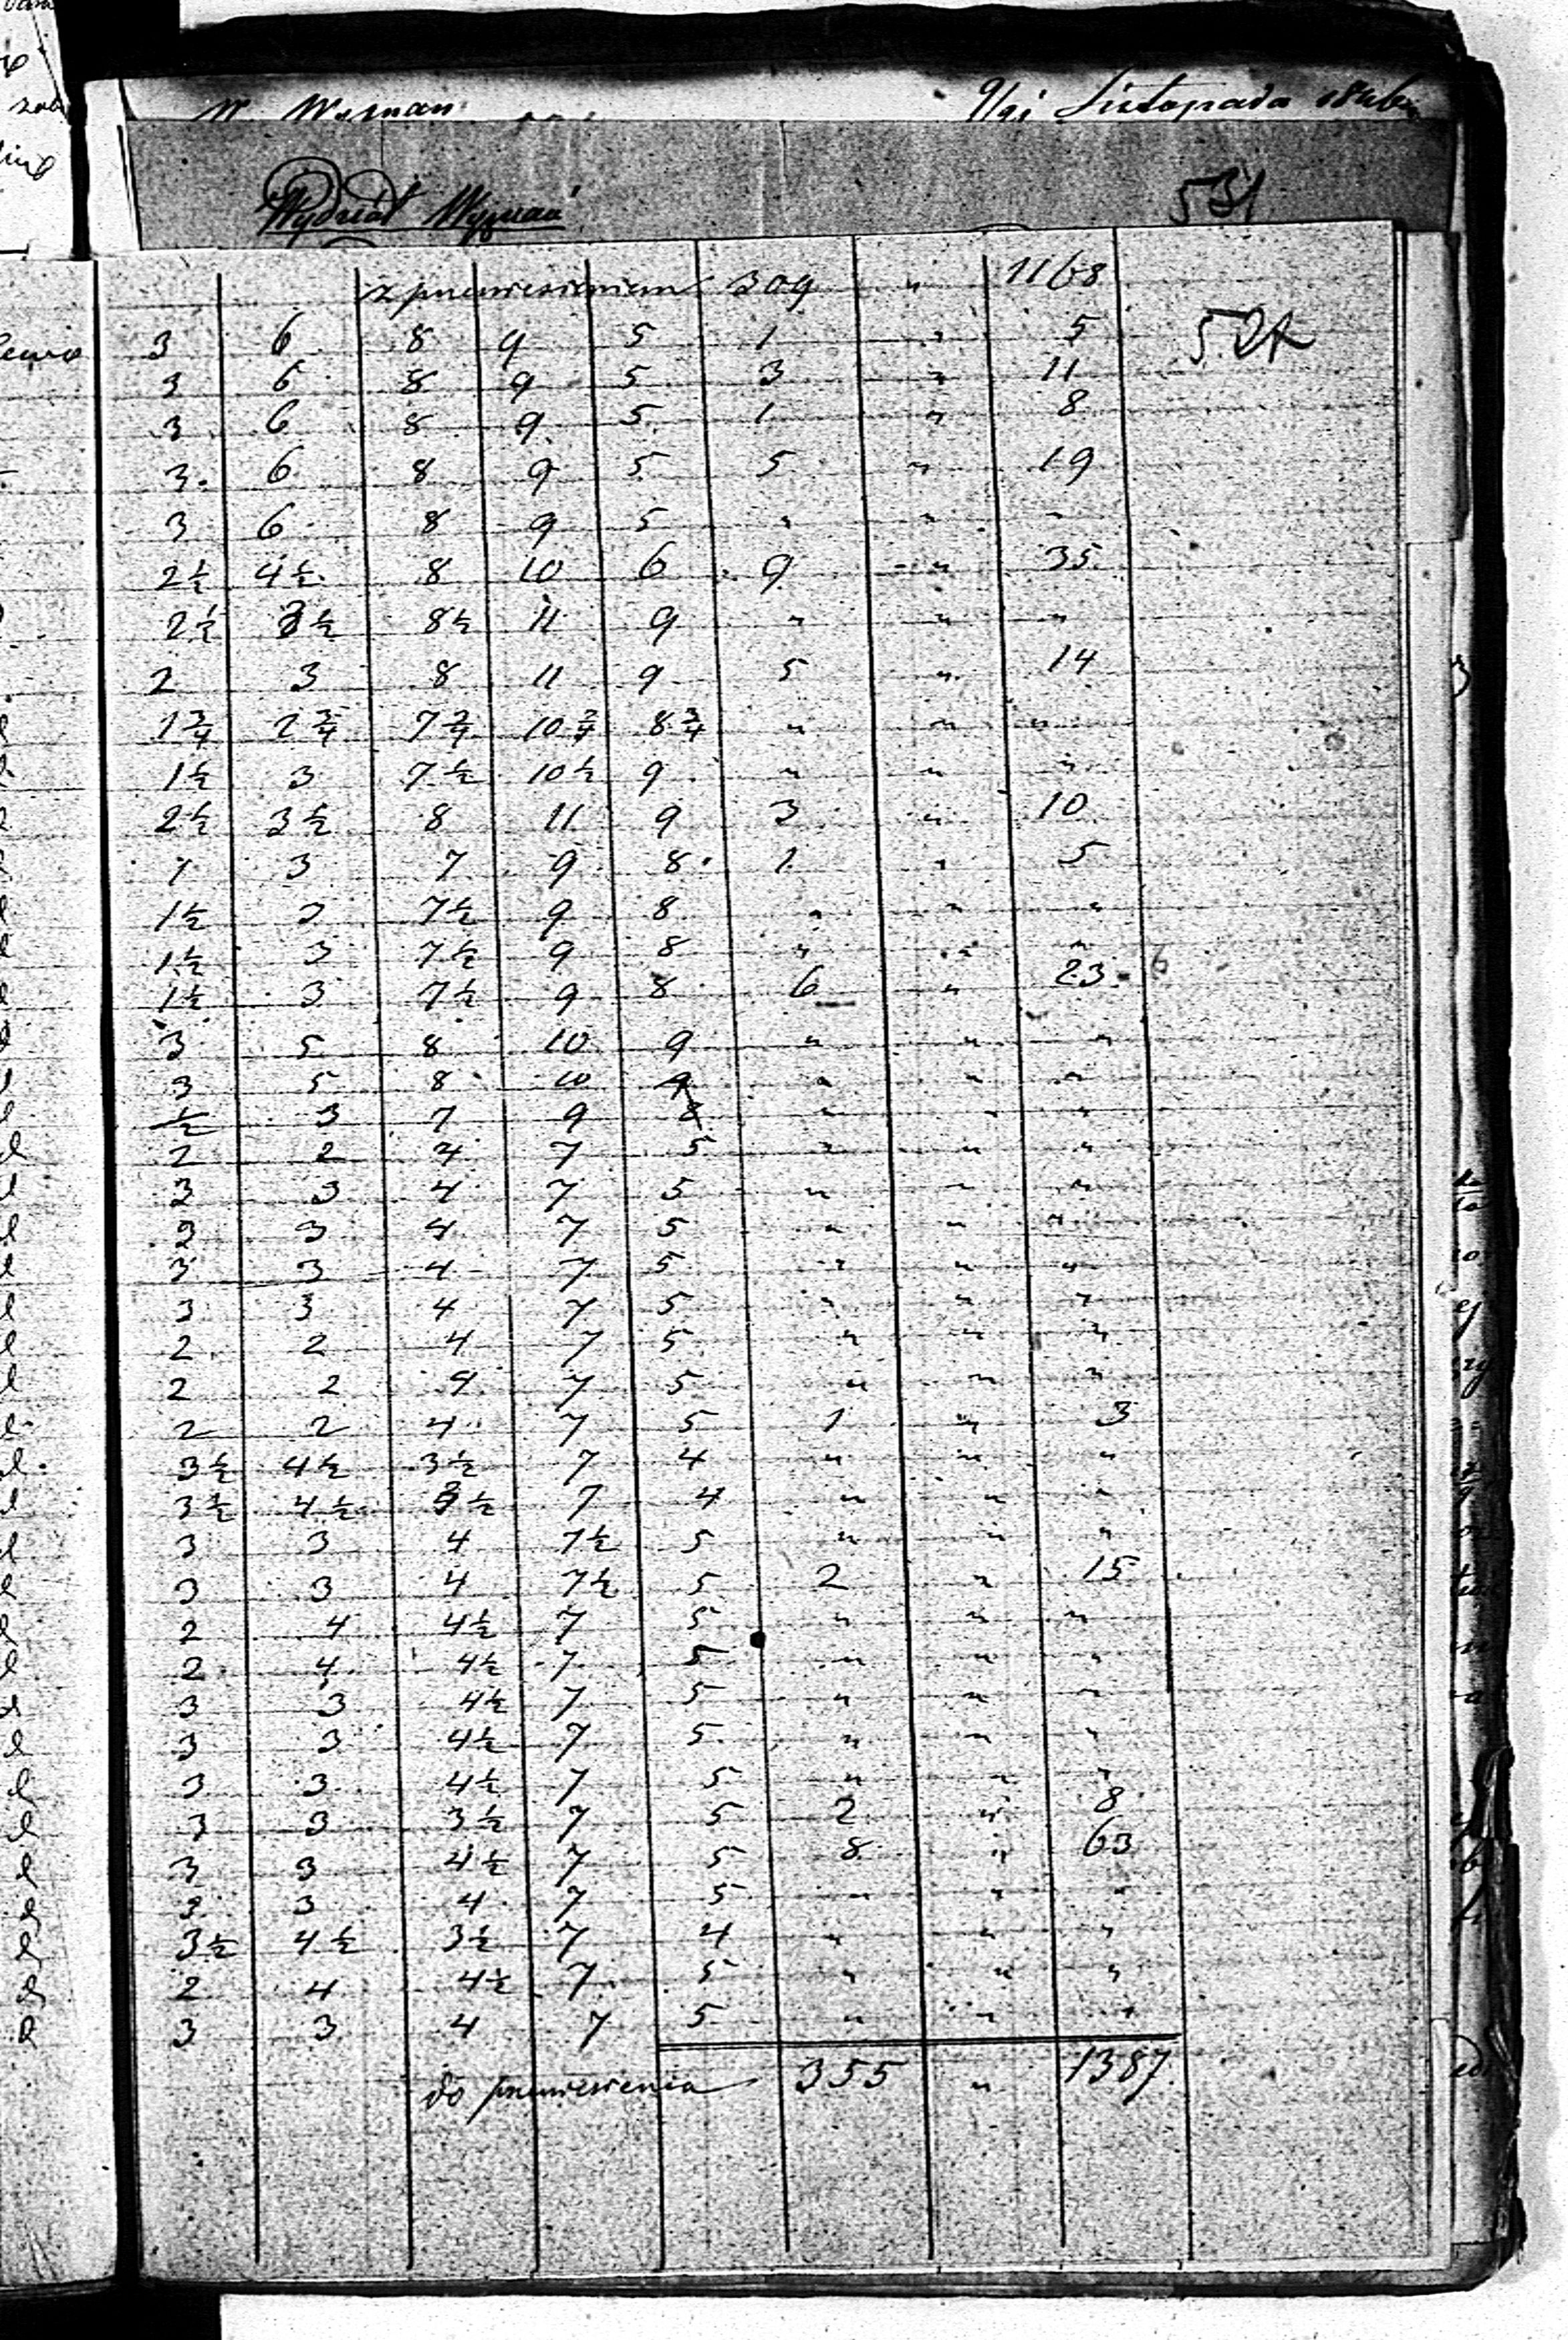 Listopada
Wydział Wyznań 531
z przeniesieniem 309 " 1168
3 6 8 9 5 1 " 5 524
3 6 8 9 5 3 " 11
3 6 8 9 5 1 " 8
3. 6 8 9 5 5 " 19
3 6 8 9 5 " " "
2½ 4½ 8 10 6 9 " 35
2½ 3½ 8½ 11 9 " " "
2 3 8 11 9 5 " 14
1¾ 2¾ 7¾ 10¾ 8¾ " " "
1½ 3 7½ 10½ 9 " " "
2½ 3½ 8 11 9 3 " 10
1 3 7 9 8 1 " 5
1½ 3 7½ 9 8 " " "
1½ 3 7½ 9 8 " " "
1½ 3 7½ 9 8 6 " 23 6
3 5 8 10 9 " " "
3 5 8 10 9 " " "
½ 3 7 9 8 " " "
2 2 4 7 5 " " "
3 3 4 7 5 " " "
3 3 4 7 5 " " "
3 3 4 7 5 " " "
3 3 4 7 5 " " "
2 2 4 7 5 " " "
2 2 4 7 5 " " "
2 2 4 7 5 1 " 3
3½ 4½ 3½ 7 4 " " "
3½ 4½ 3½ 7 4 " " "
3 3 4 7½ 5 " " "
3 3 4 7½ 5 2 " 15
2 4 4½ 7 5 " " "
2 4 4½ 7 5 " " "
3 3 4½ 7 5 " " "
3 3 4½ 7 5 " " "
3 3 4½ 7 5 " " "
3 3 3½ 7 5 2 " 8
3 3 4½ 7 5 8 " 63
3 3 4 7 5 " " "
3½ 4½ 3½ 7 4 " " "
2 4 4½ 7 5 " " "
3 3 4 7 5 " " "
do przeniesienia 355 " 1387